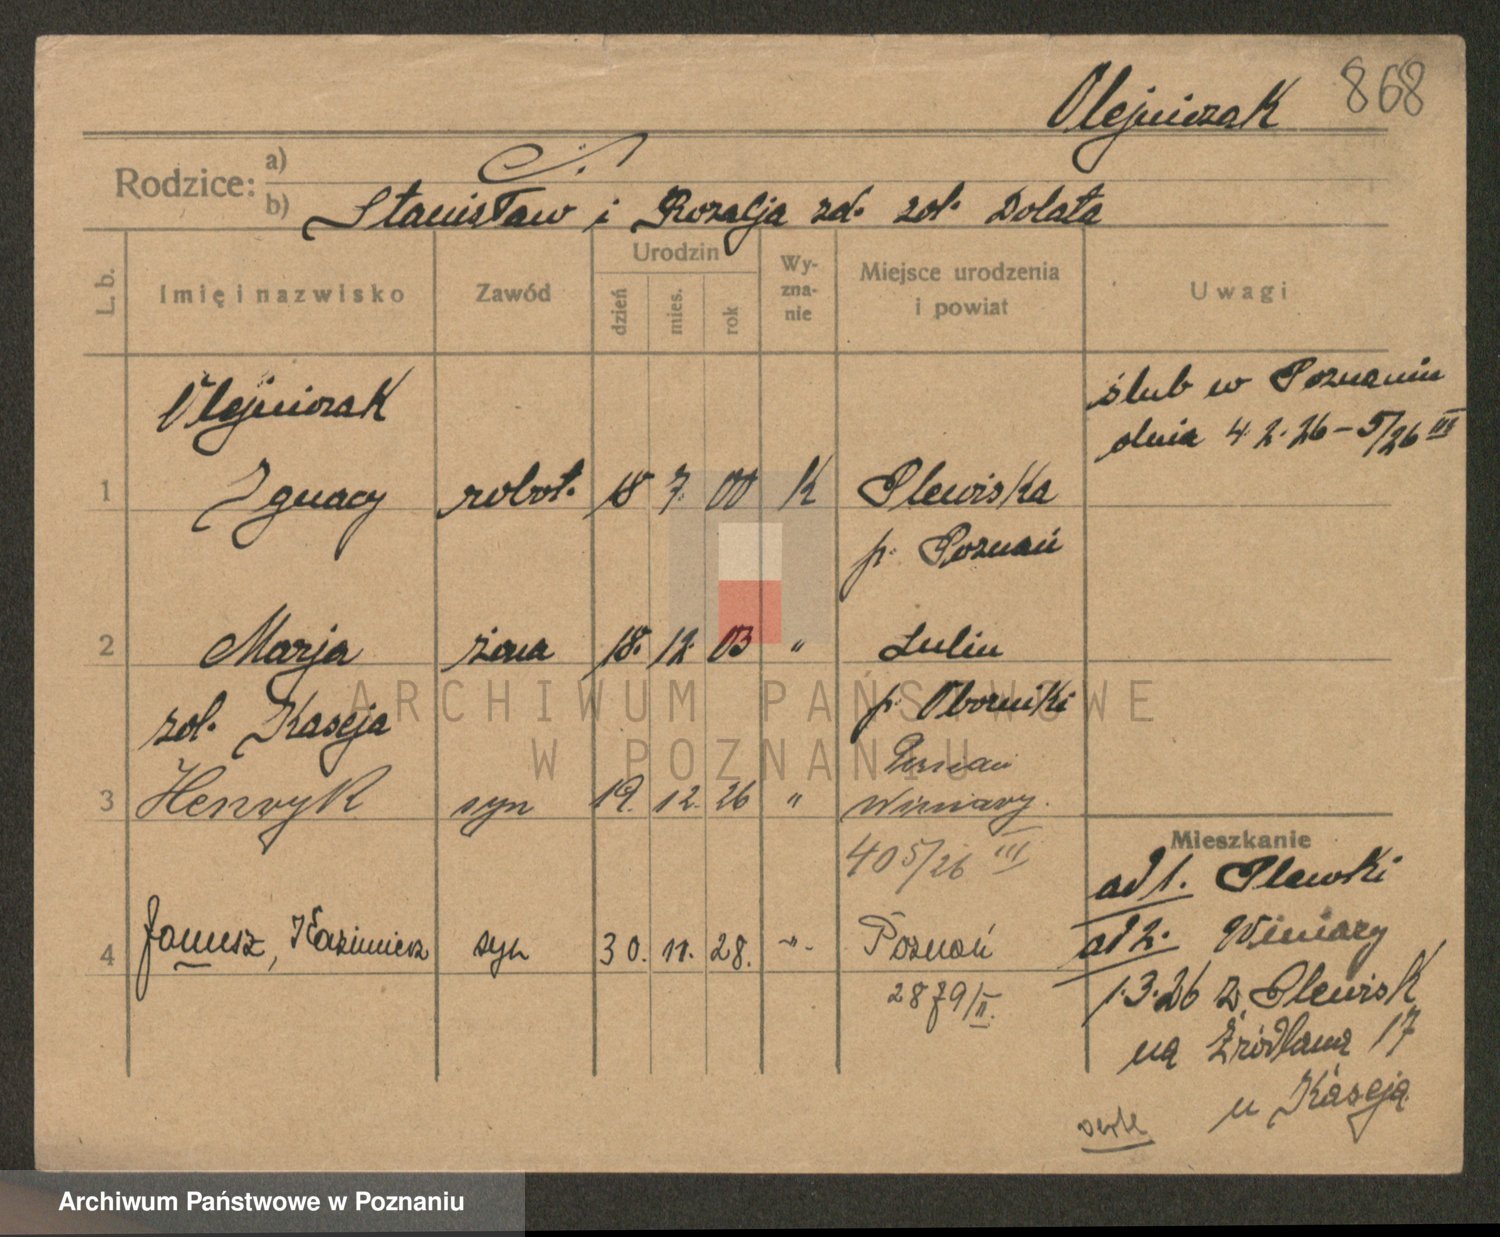 Olejniczak 868
Rodzice: a)
b) Stanisław i Rozalja zd. zol. Dolata
L. b.
Imię i nazwisko
Zawód
Urodzin
dzień
mies.
rok
Wy-
zna-
nie
Miejsce urodzenia
i powiat
Uwagi
Olejniczak
ślub w Poznaniu
dnia 4.2.26 – 5/26 III
1 Ignacy robot. 18 7. 00 K Plewiska
p. Poznań
2 Marja żona 18. 12. 03 " Lulin
zol. Kaseja p. Oborniki
Poznań
3 Henryk syn 19. 12. 26 " Winiary.
405/26 III
Mieszkanie
ad 1. Plewki
4 Janusz, Kazimierz syn 30. 11. 28. -"- Poznań
2879/II.
ad 2. Winiary
1.3.26 z Plewisk
na Źródlaną 17
u Kaseja
verte
ARCHIWUM PAŃSTWOWE
W POZNANIU
Archiwum Państwowe w Poznaniu